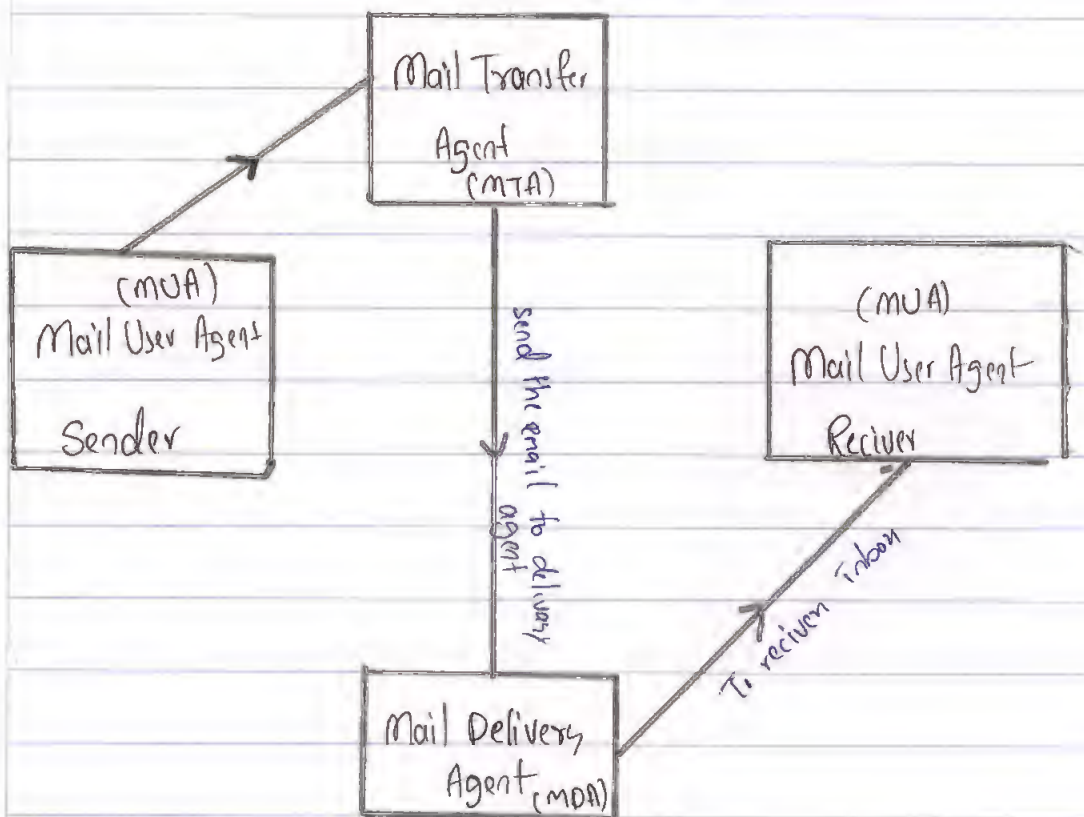 Mail Transfer
Agent
(MTA)
(MUA)
Mail User Agent
Sender
send the email to delivary
agent
(MUA)
Mail User Agent
Reciver
To reciver Inbox
Mail Delivery
Agent (MDA)